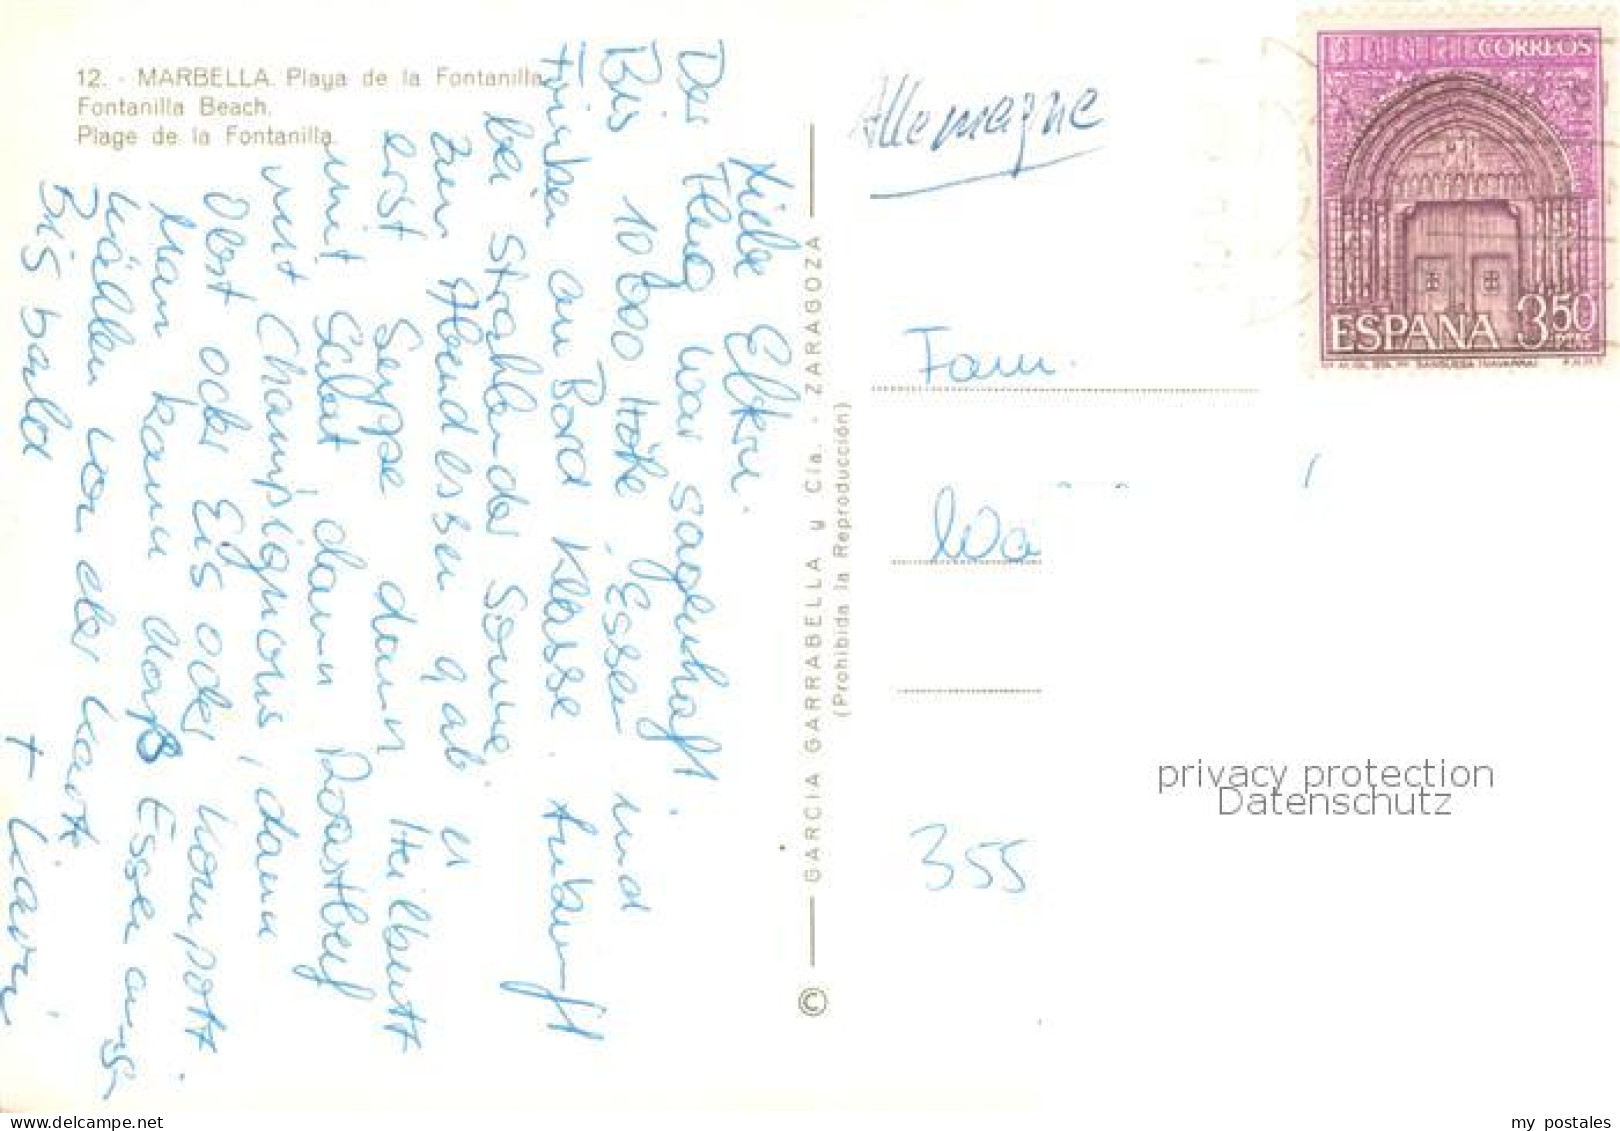 12. - MARBELLA. Playa de la Fontanilla.
Fontanilla Beach.
Plage de la Fontanilla.
Liebe Eltern.
Der Flug war sagenhaft.
Bis 10000 Höhe, Essen und
Trinken an Bord Klasse. Ankunft
bei strahlender Sonne.
Zum Abendessen gab's
erst Suppe dann Heilbutt
mit Salat dann Roastbeef
mit Champignons, dann
Obst oder Eis oder Kompott.
Man kann aufs Essen
wählen von der Karte
Bis bald
+
GARCIA GARRABELLA y Cía. - ZARAGOZA
(Prohibida la Reproducción)
©
Allemagne
CORREOS
ESPAÑA 3'50
PTAS
SANGUESA (NAVARRA)
F.N.M.T.
Fam.
Wa
355
privacy protection
Datenschutz
my_postales